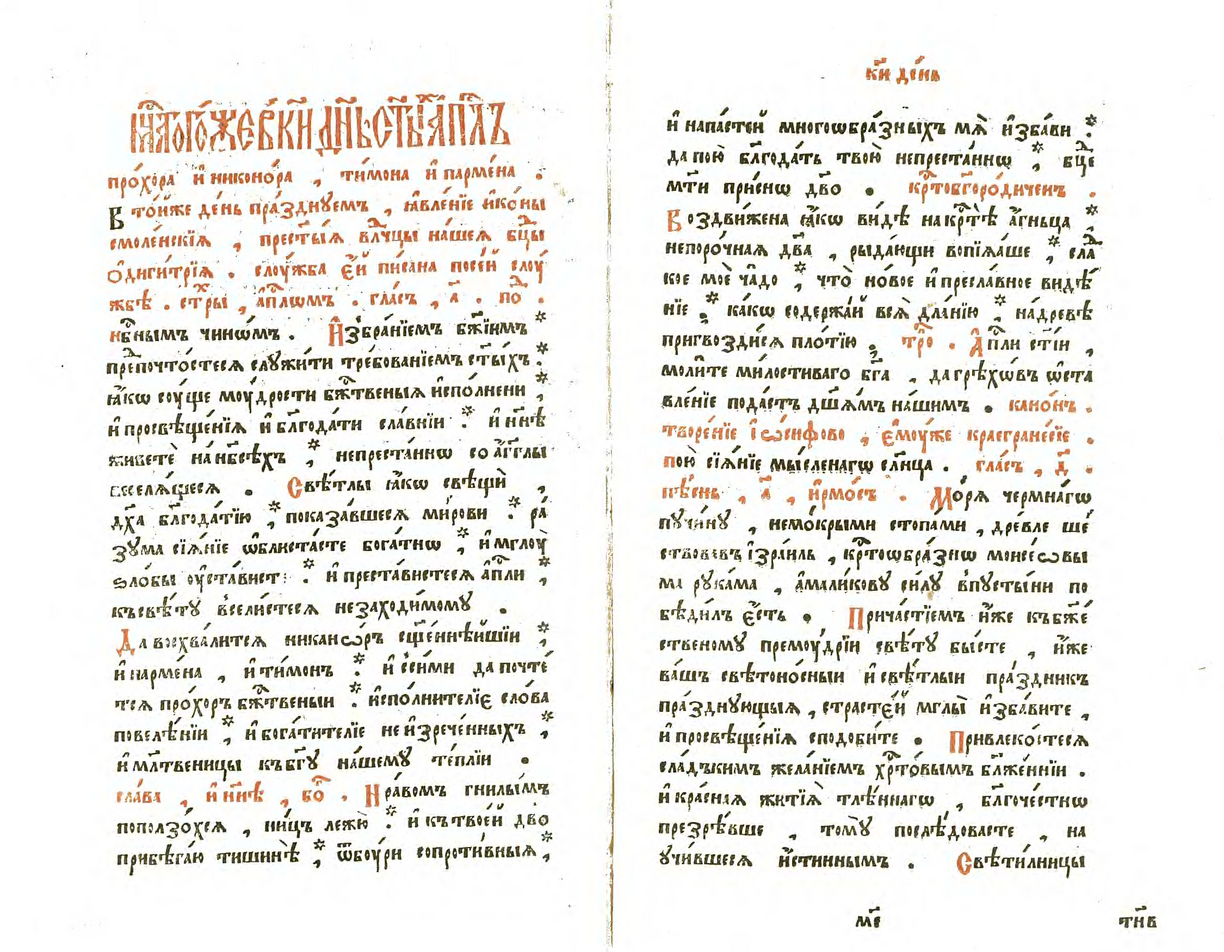 мц҃а того́же въ к҃и дн҃ь ст҃ы́хъ ап҃лъ
про́хора и҆ никоно́ра , ти́мона и҆ парме́на .
В то́йже де́нь пра́зднꙋемъ , ꙗ҆вле́нїе и҆ко́ны
смоле́нскїѧ , прест҃ы́ѧ влⷣчцы на́шеѧ бцⷣы
ѻ҆диги́трїѧ . слꙋ́жба є҆́й пи́сана посе́й слоу́
жбѣ . стⷯры , а҆пⷭ҇лѡмъ . гла́съ , а҃ . поⷣ .
нб҃нымъ чино́мъ . И҆збра́нїемъ бж҃їимъ *
препочто́стесѧ слꙋжи́ти тре́бованїемъ ст҃ы́хъ .*
ꙗ҆́кѡ сꙋ́ще моу́дрости бжⷭ҇твеныѧ и҆спо́лнени ,*
и҆ просвѣще́нїѧ и҆ блгⷣода́ти сла́внїи .* и҆ нн҃ѣ
живетѐ на нб҃сѣ́хъ ,* непреста́ннѡ со а҆́гг҃лы
вселѧ́щесѧ . Свѣ́тлы ꙗ҆́кѡ свѣщѝ ,
дх҃а блгⷣода́тїю ,* показа́вшесѧ ми́рови .* ра́
зума сїѧ́нїе ѡ҆блиста́сте бога́тнѡ ,* и҆ мглоу̀
ѕло́бы оу҆ста́вист .* и҆ преста́вистесѧ а҆пⷭ҇ли ,*
къ свѣ́тꙋ всели́стесѧ незаходи́момꙋ .
Да восхва́литсѧ никанѡ́ръ сщ҃еннѣ́йшїи ,*
и҆ парме́на , и҆ ти́монъ .* и҆ съ си́ми да почте́
тсѧ про́хоръ бжⷭ҇твеныи .* и҆спо́лнителїе сло́ва
повелѣ́нїи ,* и҆ бога́тителїе неизрече́нныхъ ,*
и҆ мл҃твеницы къ бг҃ꙋ на́шемꙋ те́плїи .
сла́ва , и҆ нн҃ѣ , боⷢ . Нра́вомъ гнилы́мъ
поползо́хсѧ , ни́цъ лежꙋ̀ .* и҆ къ твое́й дв҃о
прибѣга́ю тишинѣ̀ ,* ѿ бꙋ́ри сопроти́вныѧ ,*
к҃и де́нѧ
и҆ напа́стей многоѡбра́зныхъ мѧ̀ и҆зба́ви .*
да пою̀ блгⷣода́ть твою̀ непреста́ннѡ ,* бцⷣе
мт҃и при́снѡ дв҃о . крⷭ҇тобгоро́диченъ .
Воздви́жена ꙗ҆́кѡ ви́дѣ на крⷭ҇тѣ̀ а҆́гньца ,*
непоро́чнаѧ дв҃а , рыда́ющи вопїѧ́ше ,* сла́
кое моѐ ча́до ,* что̀ но́вое и҆ пресла́вное видѣ́
нїе .* ка́кѡ содержа́й всѧ̀ дла́нїю ,* на дре́вѣ
пригвозди́сѧ пло́тїю . троⷫ . А҆пⷭ҇ли ст҃і́и ,
моли́те ми́лостиваго бг҃а , да грѣхѡ́въ ѡ҆ста
вле́нїе пода́стъ дш҃а́мъ на́шимъ . кано́нъ .
творе́нїе і҆ѡ́сифово , є҆мꙋ́же краегране́сїе .
пою̀ сїѧ́нїе мы́сленагѡ сл҃нца . гла́съ , д҃ .
пѣ́снь , а҃ , и҆рмо́съ . Мо́рѧ чермна́гѡ
пꙋчи́нꙋ , немо́крыми стопа́ми , дре́вле ше́
ствовавъ і҆зра́иль , крⷭ҇тоѡбра́знѡ моисе́ѡвы
ма рꙋка́ма , а҆мали́ковꙋ си́лꙋ в пꙋсты́ни по
бѣди́лъ є҆́сть . Прича́стїемъ и҆́же къ бж҃е́
ственомꙋ премꙋ́дрїи свѣ́тꙋ бы́сте , и҆́же
ва́шъ свѣтоно́сныи и҆ свѣ́тлыи пра́здникъ
пра́зднꙋющыѧ , страсте́й мглы̀ и҆зба́вите ,
и҆ просвѣще́нїѧ сподо́бите . Привлеко́стесѧ
сла́дъкимъ жела́нїемъ хрⷭ҇то́вымъ бл҃же́ннїи .
и҆ кра́снаѧ житїѧ̀ тлѣ́ннагѡ , бл҃гоче́стнѡ
презрѣ́вше , томꙋ̀ послѣ́довасте , на
ꙋчи́вшесѧ и҆́стиннымъ . Свѣти́лницы
м҃є
тн҃в